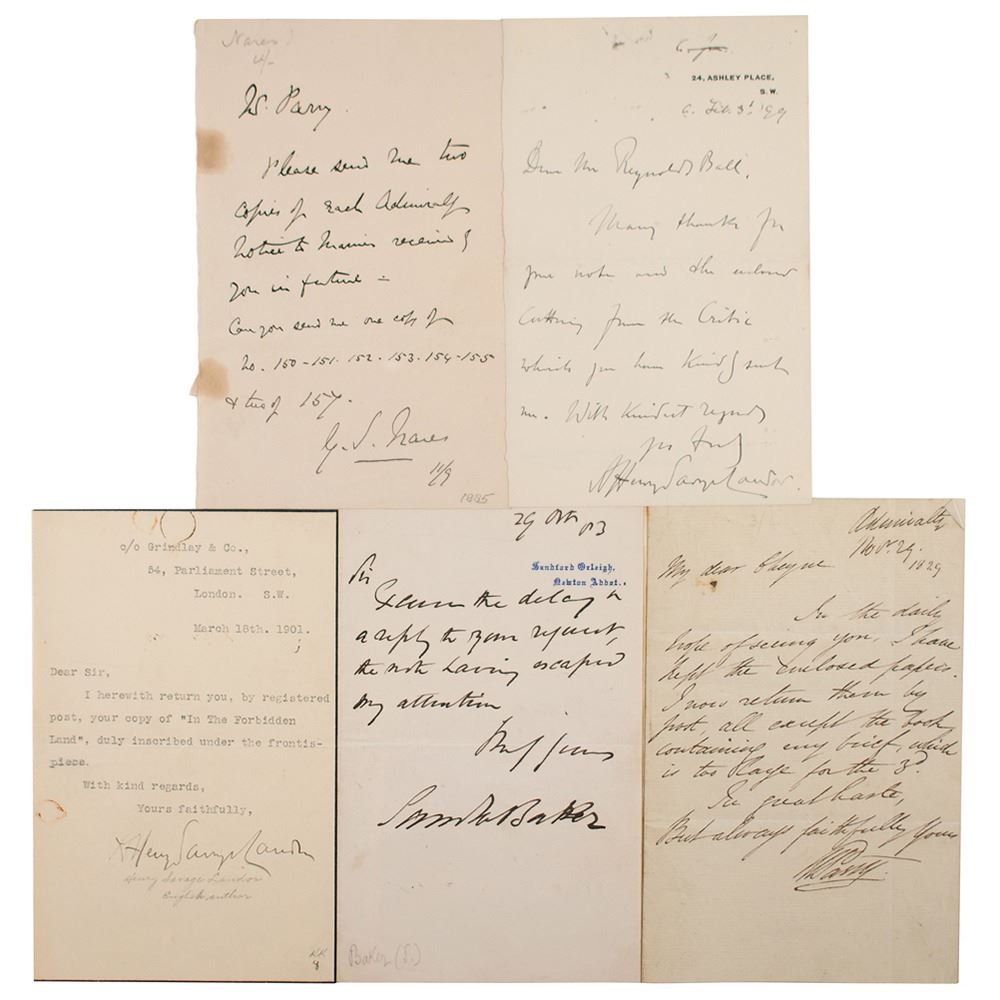 Nares
W. Parry.
Please send me two
copies of each Admiralty
Notice to Mariners received by
you in future -
Can you send me one copy of
No. 150-151. 152. 153. 154-155
& two of 157.
G. S. Nares
11/9
1885
24, ASHLEY PLACE,
S.W.
Feb. 3d '99
Dear Mr Reynolds Ball,
Many thanks for
your note and the enclosed
cutting from the Critic
which you have kindly sent
me. With kindest regards
yrs truly
A Henry Savage Landor.
c/o Grindlay & Co.,
54, Parliament Street,
London. S.W.
March 18th. 1901.
Dear Sir,
I herewith return you, by registered
post, your copy of "In The Forbidden
Land", duly inscribed under the frontis-
piece.
With kind regards,
Yours faithfully,
A Henry Savage Landor
Henry Savage Landor
English author
KK
8
29 Oct 83
Sandford Orleigh,
Newton Abbot.
Sir
Excuse the delay in
a reply to your request,
the note having escaped
my attention
Truly yours
Saml W Baker
Baker (S.)
Admiralty
Nov. 29.
1829
My dear Cheyne
In the daily
hope of seeing you, I have
kept the enclosed papers.
I now return them by
post, all except the book
containing my brief, which
is too large for the 3d.
In great haste,
But always faithfully yours
WEParry.